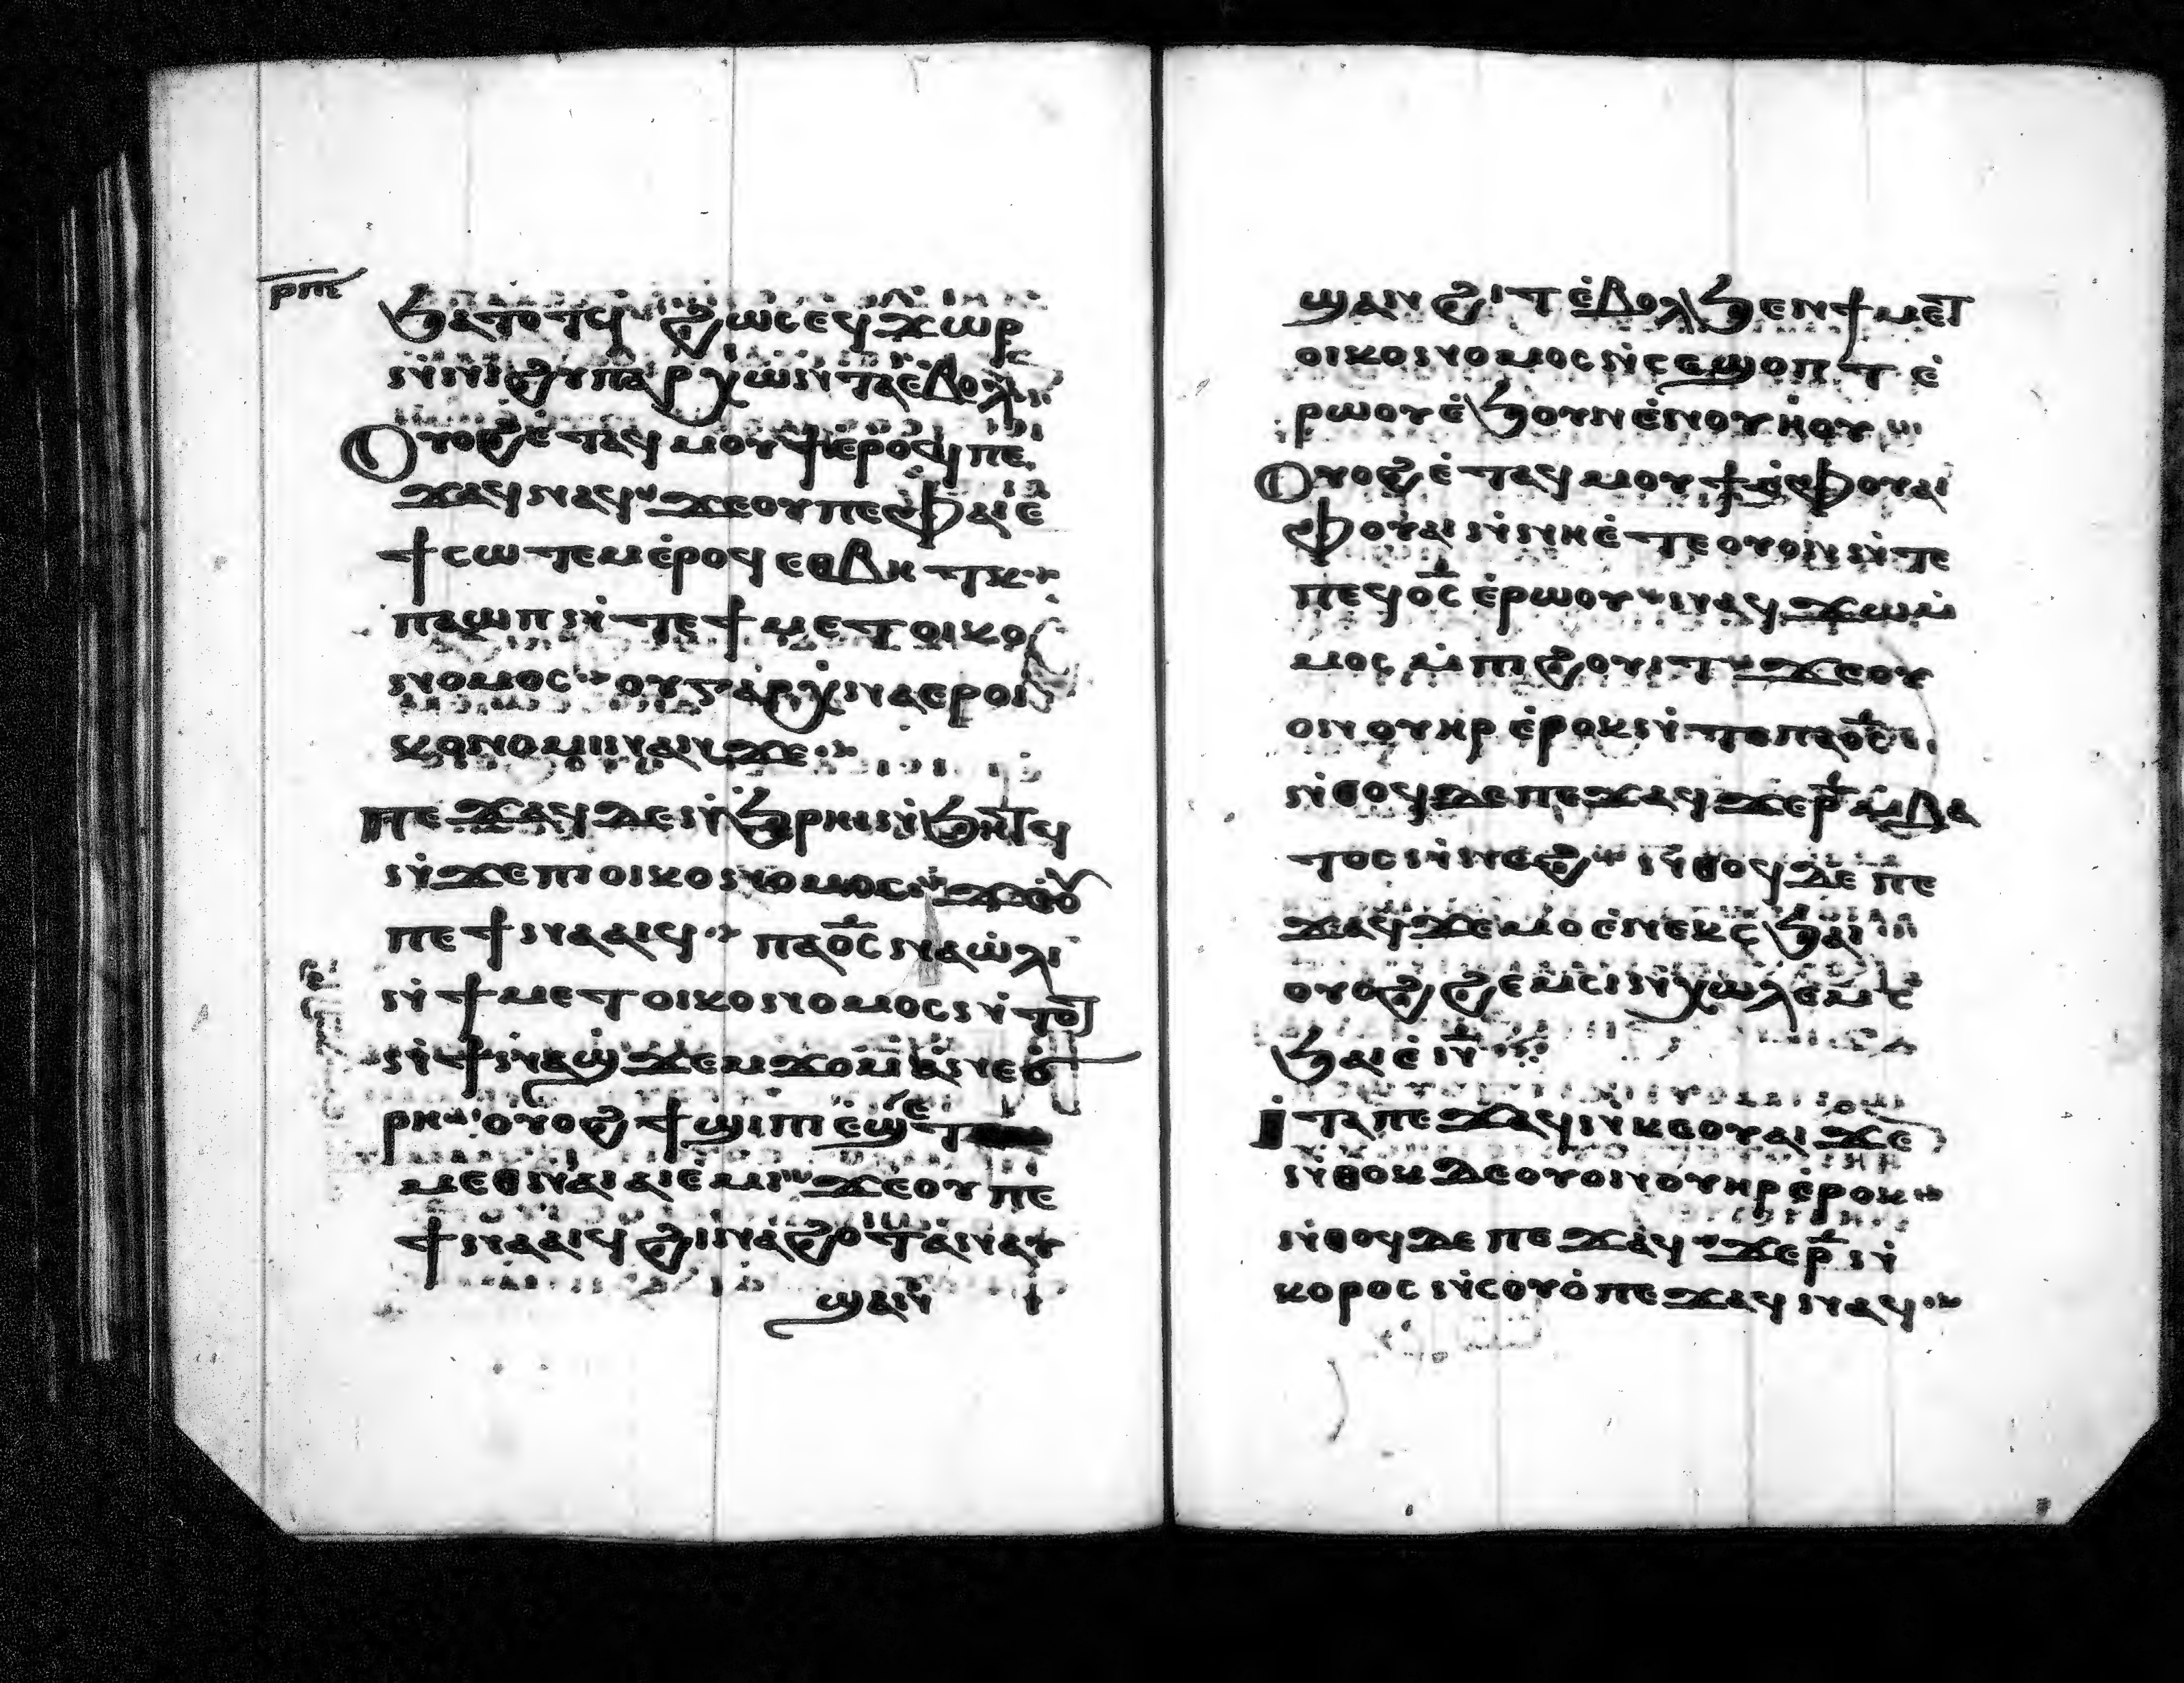 ⲣⲡⲉ
ϧⲁⲧⲟⲧϥ ϩⲱⲥ ⲉϥϫⲱⲣ
ⲛ̀ⲛⲓϩⲩⲡⲁⲣⲭⲱⲛⲧⲁ ⲉ̀ⲃⲟⲗ
Ⲟⲩⲟϩ ⲉ̀ⲧⲁϥⲙⲟⲩϯ ⲉ̀ⲣⲟϥ ⲡⲉ
ϫⲁϥ ⲛⲁϥ ϫⲉ ⲟⲩ ⲡⲉ ⲫⲁⲓ ⲉ̀
ϯⲥⲱⲧⲉⲙ ⲉ̀ⲣⲟϥ ⲉⲑⲃⲏⲧⲕ
ⲡⲁⲱⲡ ⲛ̀ⲧⲉ ϯⲙⲉⲧⲟⲓⲕⲟ
ⲛⲟⲙⲟⲥ ⲟⲩ ⲅⲁⲣ ⲭⲛⲁⲉⲣⲟⲓ
ⲕⲟⲛⲟⲙⲓⲛ ⲁⲛ ϫⲉ
ⲡⲉϫⲁϥ ⲇⲉ ⲛ̀ϧⲣⲏⲓ ⲛ̀ϧⲏⲧϥ
ⲛ̀ϫⲉ ⲡⲓⲟⲓⲕⲟⲛⲟⲙⲟⲥ ϫⲉ ⲟⲩ
ⲡⲉϯⲛⲁⲁⲓϥ ⲡⲁⲟ̅ⲥ̅ ⲛⲁⲱ̀ⲗⲓ
ⲛ̀ϯⲙⲉⲧⲟⲓⲕⲟⲛⲟⲙⲟⲥ ⲛ̀ⲧⲟⲧ
ⲛ̀ϯⲛⲁϣϫⲉⲙϫⲟⲙ ⲁⲛ ⲉ̀ⲃ
ⲣⲏ ⲟⲩⲟϩ ϯϣⲓⲡⲓ ⲉ̀ϣⲉⲧ
ⲙⲉⲑⲛⲁⲓ ⲁⲓⲉ̀ⲙⲓ ϫⲉ ⲟⲩ ⲡⲉ
ϯⲛⲁⲁⲓϥ ϩⲓⲛⲁ ϩⲟⲧⲁⲛ ⲁⲩ
ϣⲁⲛ
ϣⲁⲛϩⲓⲧ ⲉ̀ⲃⲟⲗ ϧⲉⲛ ϯⲙⲉⲧ
ⲟⲓⲕⲟⲛⲟⲙⲟⲥ ⲛ̀ⲥⲉϣⲟⲡⲧ ⲉ̀
ⲣⲱⲟⲩ ⲉ̀ϧⲟⲩⲛ ⲉ̀ⲛⲟⲩⲏⲟⲩ
Ⲟⲩⲟϩ ⲉ̀ⲧⲁϥⲙⲟⲩϯ ⲉ̀ⲫⲟⲩⲁⲓ
ⲫⲟⲩⲁⲓ ⲛ̀ⲛⲏ ⲉ̀ⲧⲉ ⲟⲩⲟⲛ ⲛ̀ⲧⲉ
ⲡⲉϥⲟ̅ⲥ̅ ⲉ̀ⲣⲱⲟⲩ ⲛⲁϥϫⲱ ⲙ̀
ⲙⲟⲥ ⲙ̀ⲡⲓϩⲟⲩⲓⲧ ϫⲉ ⲟⲩ
ⲟⲛ ⲟⲩⲏⲣ ⲉ̀ⲣⲟⲕ ⲛ̀ⲧⲉ ⲡⲁⲟ̅ⲥ̅
ⲛ̀ⲑⲟϥ ⲇⲉ ⲡⲉϫⲁϥ ϫⲉ ⲣ̅ ⲙ̀ⲃⲁ
ⲧⲟⲥ ⲛ̀ⲛⲉϩ ⲛ̀ⲑⲟϥ ⲇⲉ ⲡⲉ
ϫⲁϥ ϫⲉ ⲙⲟ ⲉ̀ⲛⲉⲕⲥϧⲁⲓ
ⲟⲩⲟϩ ϩⲉⲙⲥⲓ ⲛ̀ⲭⲱⲗⲉⲙ ⲥ
ϧⲁⲓ ⲉ̀ ⲛ̅
ⲓⲧⲁ ⲡⲉϫⲁϥ ⲛ̀ⲕⲉⲟⲩⲁⲓ ϫⲉ
ⲛ̀ⲑⲟⲕ ⲇⲉ ⲟⲩⲟⲛ ⲟⲩⲏⲣ ⲉ̀ⲣⲟⲕ
ⲛ̀ⲑⲟϥ ⲇⲉ ⲡⲉϫⲁϥ ϫⲉ ⲣ̅ ⲛ̀
ⲕⲟⲣⲟⲥ ⲛ̀ⲥⲟⲩⲟ̀ ⲡⲉϫⲁϥ ⲛⲁϥ